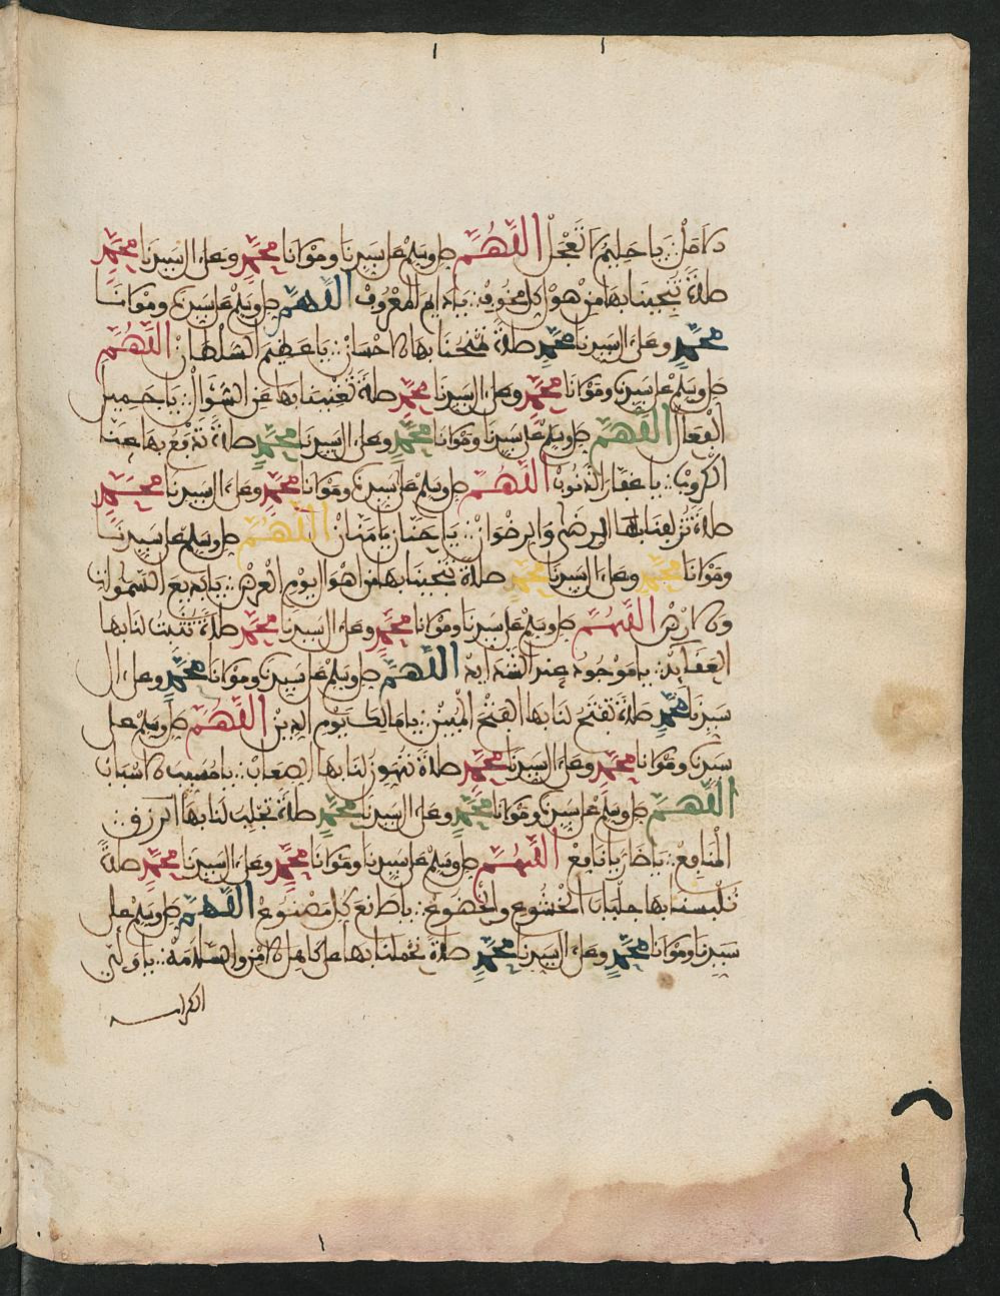 يا حليم لا تعجل اللهم صل وسلم على سيدنا ومولانا محمد وعلى ال سيدنا محمد
صلاة تنجينا بها من هول كل مخوف يا دايم المعروف اللهم صل وسلم على سيدنا ومولانا
محمد وعلى ال سيدنا محمد صلاة تمنحنا بها الاحسان يا عظيم السلطان اللهم
صل وسلم على سيدنا ومولانا محمد وعلى ال سيدنا محمد صلاة تغنينا بها عن السؤال يا جميل
الفعال اللهم صل وسلم على سيدنا ومولانا محمد وعلى ال سيدنا محمد صلاة تدفع بها عنا
الكروب يا غفار الذنوب اللهم صل وسلم على سيدنا ومولانا محمد وعلى ال سيدنا محمد
صلاة تزلفنا بها الرضى والرضوان يا حنان يا منان اللهم صل وسلم على سيدنا
ومولانا محمد وعلى ال سيدنا محمد صلاة تنجينا بها من اهوال يوم العرض يا بديع السموات
والارض اللهم صل وسلم على سيدنا ومولانا محمد وعلى ال سيدنا محمد صلاة تثبت لنا بها
العقايد يا موجود عند الشدايد اللهم صل وسلم على سيدنا ومولانا محمد وعلى ال
سيدنا محمد صلاة تفتح لنا بها الفتح المبين يا مالك يوم الدين اللهم صل وسلم على
سيدنا ومولانا محمد وعلى ال سيدنا محمد صلاة تهون لنا بها الصعاب يا مسبب الاسباب
اللهم صل وسلم على سيدنا ومولانا محمد وعلى ال سيدنا محمد صلاة تجلب لنا بها الرزق
النافع يا ضار يا نافع اللهم صل وسلم على سيدنا ومولانا محمد وعلى ال سيدنا محمد صلاة
تلبسنا بها جلباب الخشوع والخضوع يا صانع كل مصنوع اللهم صل وسلم على
سيدنا ومولانا محمد وعلى ال سيدنا محمد صلاة تحملنا بها على كاهل الامن والسلامة يا ولي
الكرامة